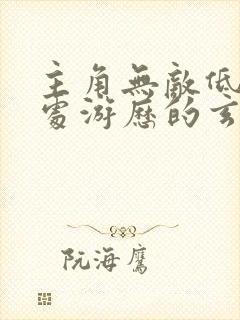 主角無敵低
處游歷的玄
阮海鷹